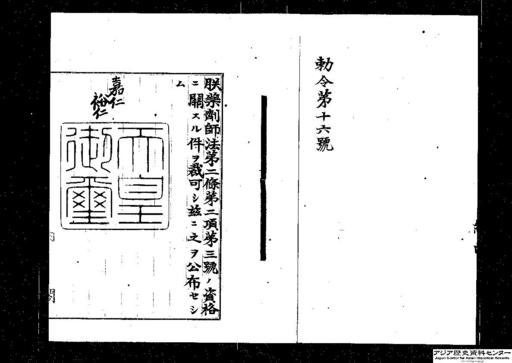 勅令第十六號
朕藥劑師法第二條第二項第三號ノ資格
ニ關スル件ヲ裁可シ玆ニ之ヲ公布セシ
ム
嘉仁
裕仁
天皇
御璽
内閣
アジア歴史資料センター
Japan Center for Asian Historical Records